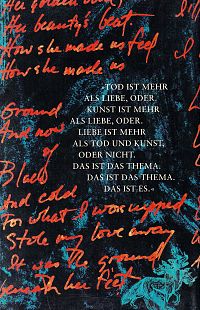 Her golden
Her beauty's beat
How she made us feel
How she made us
»TOD IST MEHR
ALS LIEBE, ODER.
KUNST IST MEHR
ALS LIEBE, ODER.
LIEBE IST MEHR
ALS TOD UND KUNST,
ODER NICHT.
DAS IST DAS THEMA.
DAS IST DAS THEMA.
DAS IST ES.«
Ground
And now
or
Black
And cold
For what I was
Stole my love away
It was the ground
beneath her feet